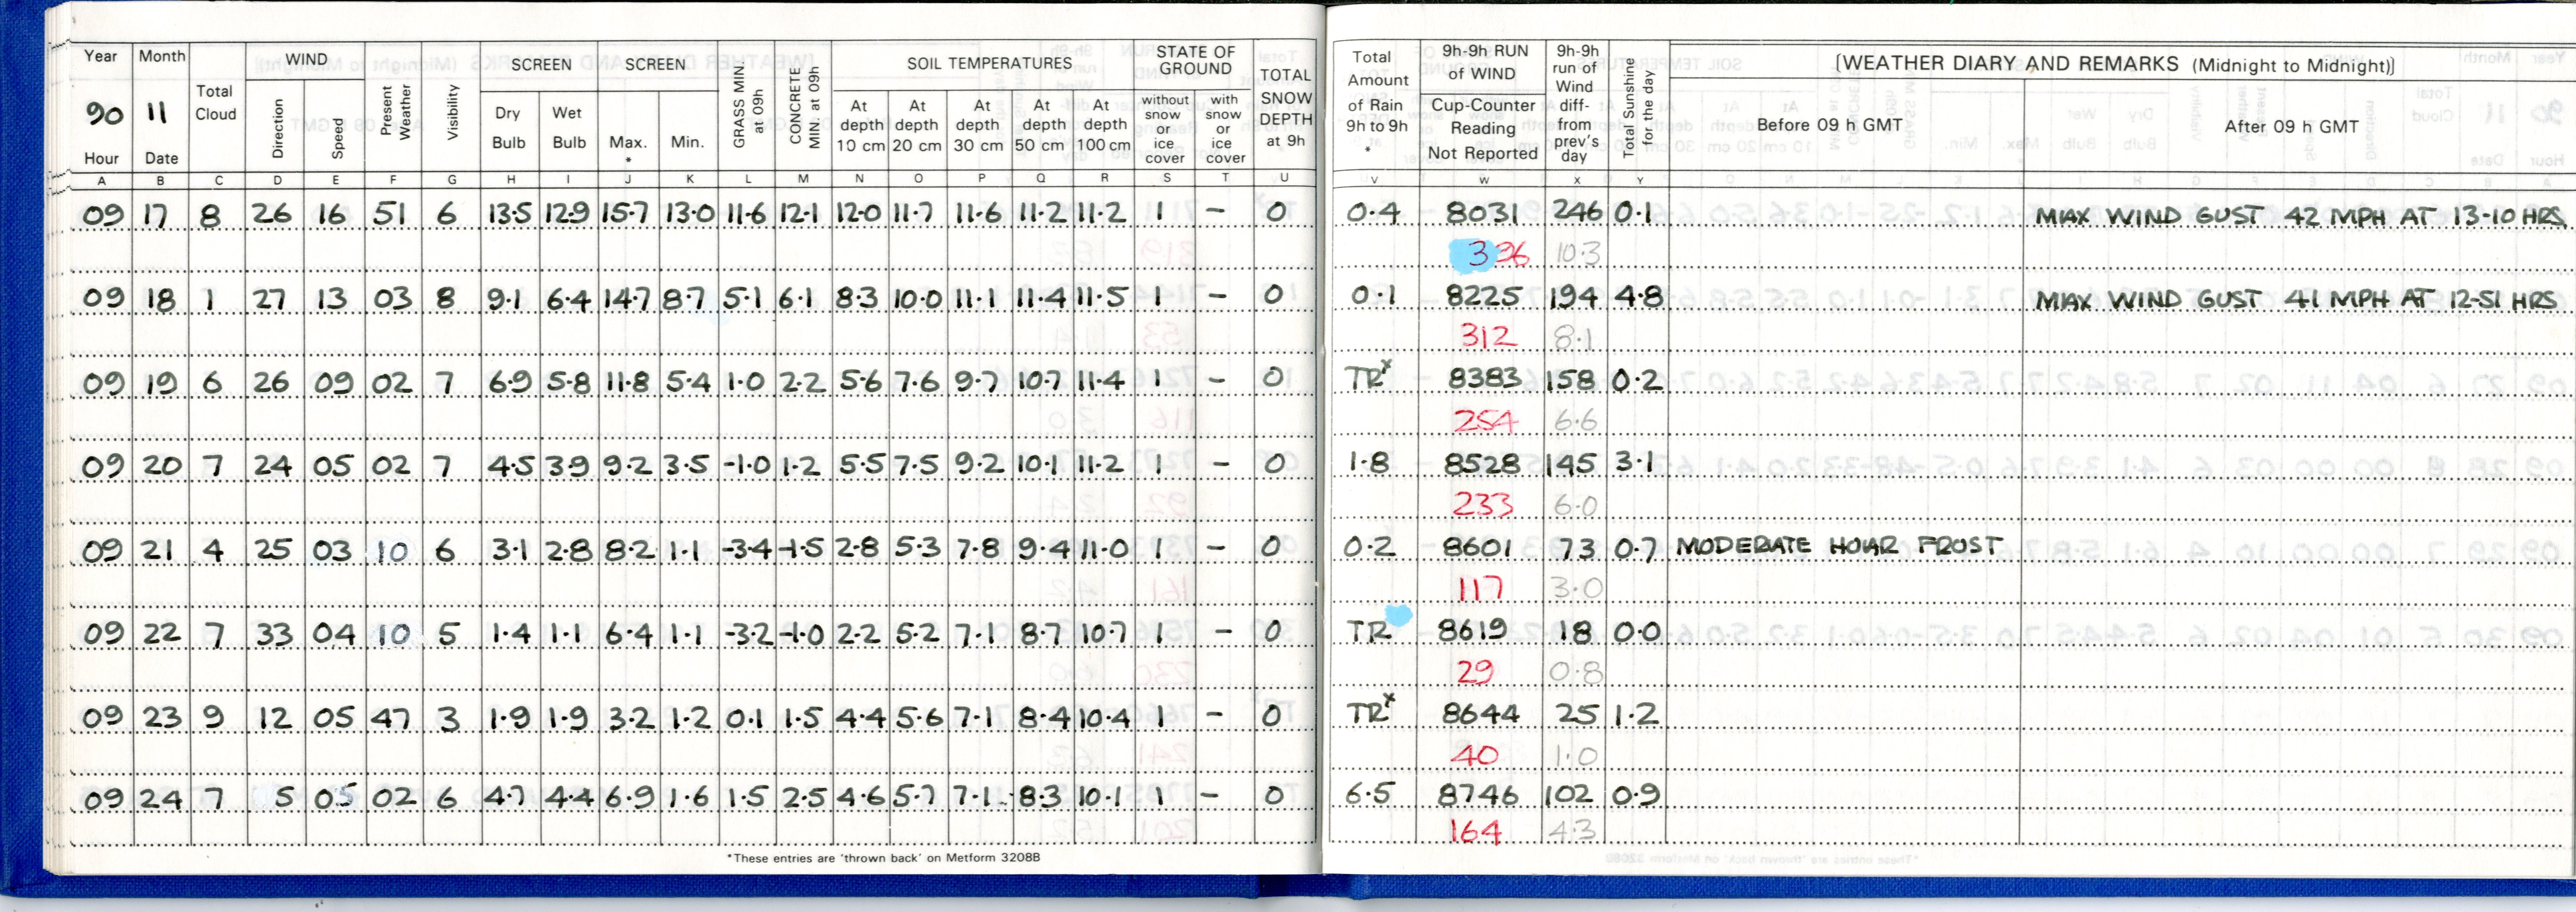 Year Month WIND SCREEN SCREEN SOIL TEMPERATURES STATE OF GROUND
90 11 Total Cloud Direction Speed Present Weather Visibility Dry Bulb Wet Bulb Max. * Min. GRASS MIN at 09h CONCRETE MIN at 09h At depth 10 cm At depth 20 cm At depth 30 cm At depth 50 cm At depth 100 cm without snow or ice cover with snow or ice cover TOTAL SNOW DEPTH at 9h
Hour Date
Total Amount of Rain 9h to 9h * 9h-9h RUN of WIND Cup-Counter Reading Not Reported 9h-9h run of Wind diff- from prev's day Total Sunshine for the day [WEATHER DIARY AND REMARKS (Midnight to Midnight)]
Before 09 h GMT After 09 h GMT
A B C D E F G H I J K L M N O P Q R S T U V W X Y
09 17 8 26 16 51 6 13.5 12.9 15.7 13.0 11.6 12.1 12.0 11.7 11.6 11.2 11.2 1 – 0 0.4 8031 246 0.1 MAX WIND GUST 42 MPH AT 13-10 HRS.
396 10.3
09 18 1 27 13 03 8 9.1 6.4 14.7 8.7 5.1 6.1 8.3 10.0 11.1 11.4 11.5 1 – 0 0.1 8225 194 4.8 MAX WIND GUST 41 MPH AT 12-51 HRS
312 8.1
09 19 6 26 09 02 7 6.9 5.8 11.8 5.4 1.0 2.2 5.6 7.6 9.7 10.7 11.4 1 – 0 TRx 8383 158 0.2
254 6.6
09 20 7 24 05 02 7 4.5 3.9 9.2 3.5 -1.0 1.2 5.5 7.5 9.2 10.1 11.2 1 – 0 1.8 8528 145 3.1
233 6.0
09 21 4 25 03 10 6 3.1 2.8 8.2 1.1 -3.4 -1.5 2.8 5.3 7.8 9.4 11.0 1 – 0 0.2 8601 73 0.7 MODERATE HOAR FROST
117 3.0
09 22 7 33 04 10 5 1.4 1.1 6.4 1.1 -3.2 -1.0 2.2 5.2 7.1 8.7 10.7 1 – 0 TR 8619 18 0.0
29 0.8
09 23 9 12 05 47 3 1.9 1.9 3.2 1.2 0.1 1.5 4.4 5.6 7.1 8.4 10.4 1 – 0 TRx 8644 25 1.2
40 1.0
09 24 7 5 05 02 6 4.7 4.4 6.9 1.6 1.5 2.5 4.6 5.7 7.1 8.3 10.1 1 – 0 6.5 8746 102 0.9
164 4.3
*These entries are 'thrown back' on Metform 3208B